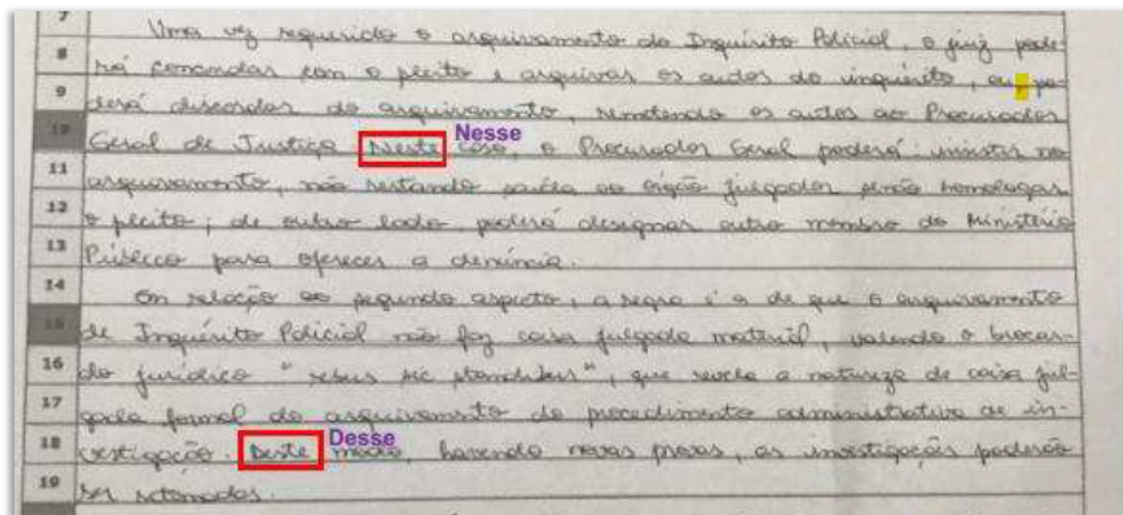 7 Uma vez requerido o arquivamento do Inquérito Policial, o juiz pode-
8 rá concordar com o pleito e arquivar os autos do inquérito, ou, po-
9 derá discordar do arquivamento, remetendo os autos ao Procurador
Nesse
10 Geral de Justiça. Neste caso, o Procurador Geral poderá: insistir no
11 arquivamento, não restando saída ao órgão julgador senão homologar
12 o pleito; de outro lado, poderá designar outro membro do Ministério
13 Público para oferecer a denúncia.
14 Em relação ao segundo aspecto, a regra é a de que o arquivamento
15 de Inquérito Policial não faz coisa julgada material, valendo o brocar-
16 do jurídico "rebus sic standibus", que revela a natureza de coisa jul-
17 gada formal do arquivamento do procedimento administrativo de in-
Desse
18 vestigação. Deste modo, havendo novas provas, as investigações poderão
19 ser retomadas.